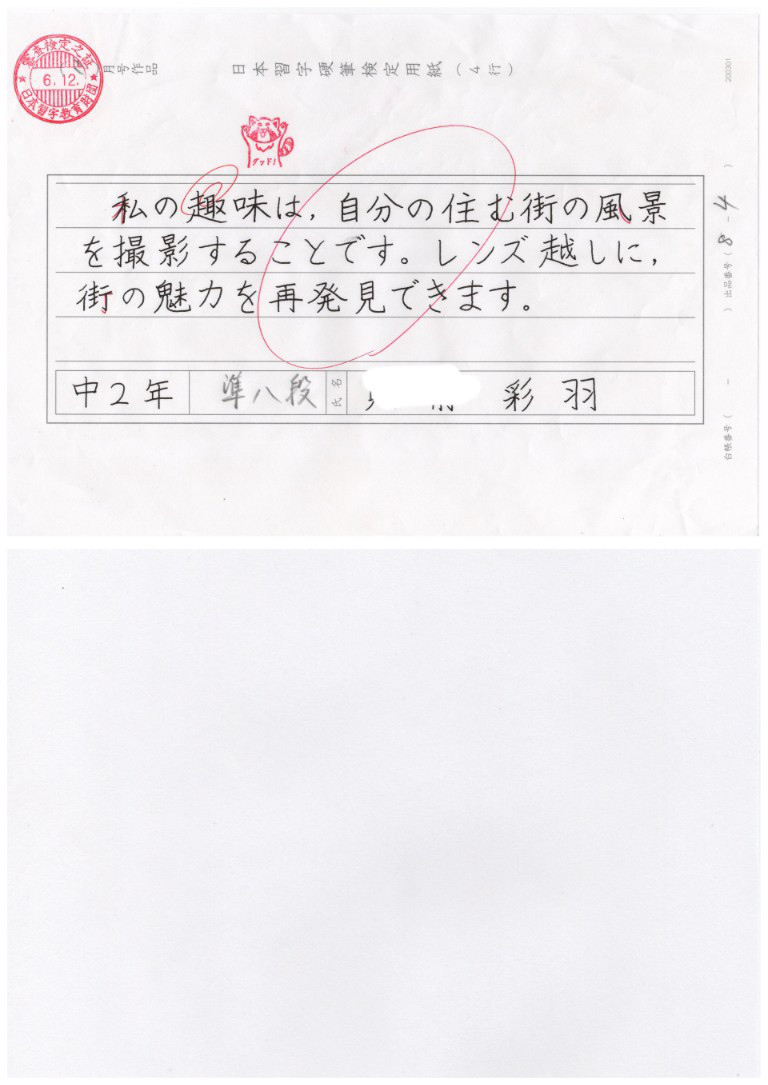 審査検定之証
6.12.
日本習字教育財団
月号作品
日本習字硬筆検定用紙(4行)
200301
グッド!
私の趣味は,自分の住む街の風景
を撮影することです。レンズ越しに,
街の魅力を再発見できます。
中2年 準八段 氏名 彩羽
出品番号( 8 - 4 )
台帳番号( - )